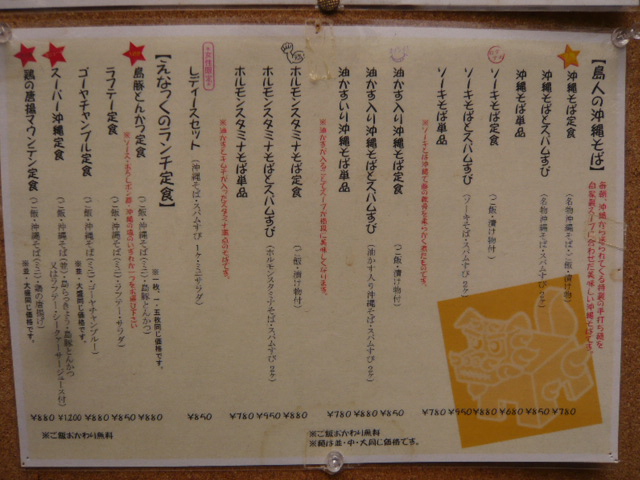 【島人の沖縄そば】
毎朝、沖縄から送られてくる特製の手打ち麺を
自家製スープに合わせた美味しい沖縄そばです。
沖縄そば定食 (名物沖縄そば・ご飯・漬け物) ¥780
沖縄そばとスパムすび (名物沖縄そば・スパムすび 2ヶ) ¥850
沖縄そば単品 ¥680
ソーキそば定食 (ご飯・漬け物付) ¥880
ソーキそばとスパムすび (ソーキそば・スパムすび 2ヶ) ¥950
ソーキそば単品 ¥780
※ソーキとは沖縄で豚の軟骨を柔らかく煮たものです。
油かす入り沖縄そば定食 (ご飯・漬け物付) ¥850
油かす入り沖縄そばとスパムすび (油かす入り沖縄そば・スパムすび 2ヶ) ¥880
油かすいり沖縄そば単品 ¥780
※油かすが入ることでスープが格段に美味しくなります。
ホルモンスタミナそば定食 (ご飯・漬け物付) ¥880
ホルモンスタミナそばとスパムすび (ホルモンスタミナそば・スパムすび 2ヶ) ¥950
ホルモンスタミナそば単品 ¥780
※油かすとホルモンが入ったスタミナ満点のそばです。
レディースセット (沖縄そば・スパムすび 1ヶ・ミニサラダ) ¥850
【えなっくのランチ定食】
※一枚、一・五枚同じ価格です。
島豚とんかつ定食 (ご飯・沖縄そば(ミニ)・島豚とんかつ) ¥880
ラフテー定食 (ご飯・沖縄そば(ミニ)・ラフテー・サラダ) ¥850
ゴーヤチャンプル定食 (ご飯・沖縄そば(ミニ)・ゴーヤチャンプルー) ¥880
※並・大盛同じ価格です。
スーパー沖縄定食 (ご飯・沖縄そば(並)・島らっきょう・島豚とんかつ
又はラフテー・シークワーサージュース付) ¥1200
鶏の唐揚マウンテン定食 (ご飯・沖縄そば(ミニ)・鶏の唐揚げ) ¥880
※並・大盛同じ価格です。
※ご飯おかわり無料
※麺は並・中・大同じ価格です。
※ご飯おかわり無料